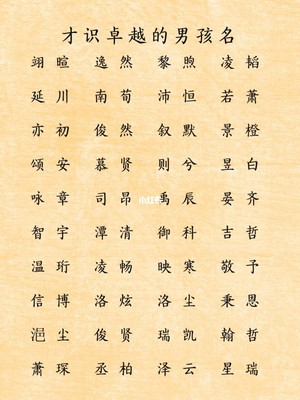 才识卓越的男孩名
翊暄 逸然 黎煦 凌韬
延川 南荀 沛恒 若萧
亦初 俊然 叙默 景橙
颂安 慕贤 则兮 昱白
咏章 司昂 禹辰 晏齐
智宇 潭清 御科 吉哲
温珩 凌畅 映寒 敬予
信博 洛炫 洛尘 秉恩
浥尘 俊贤 瑞凯 翰哲
萧琛 丞柏 泽云 星瑞
小红书